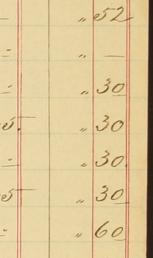 " 52
- " —
- " 30
5. " 30
- " 30
5 " 30
- " 60